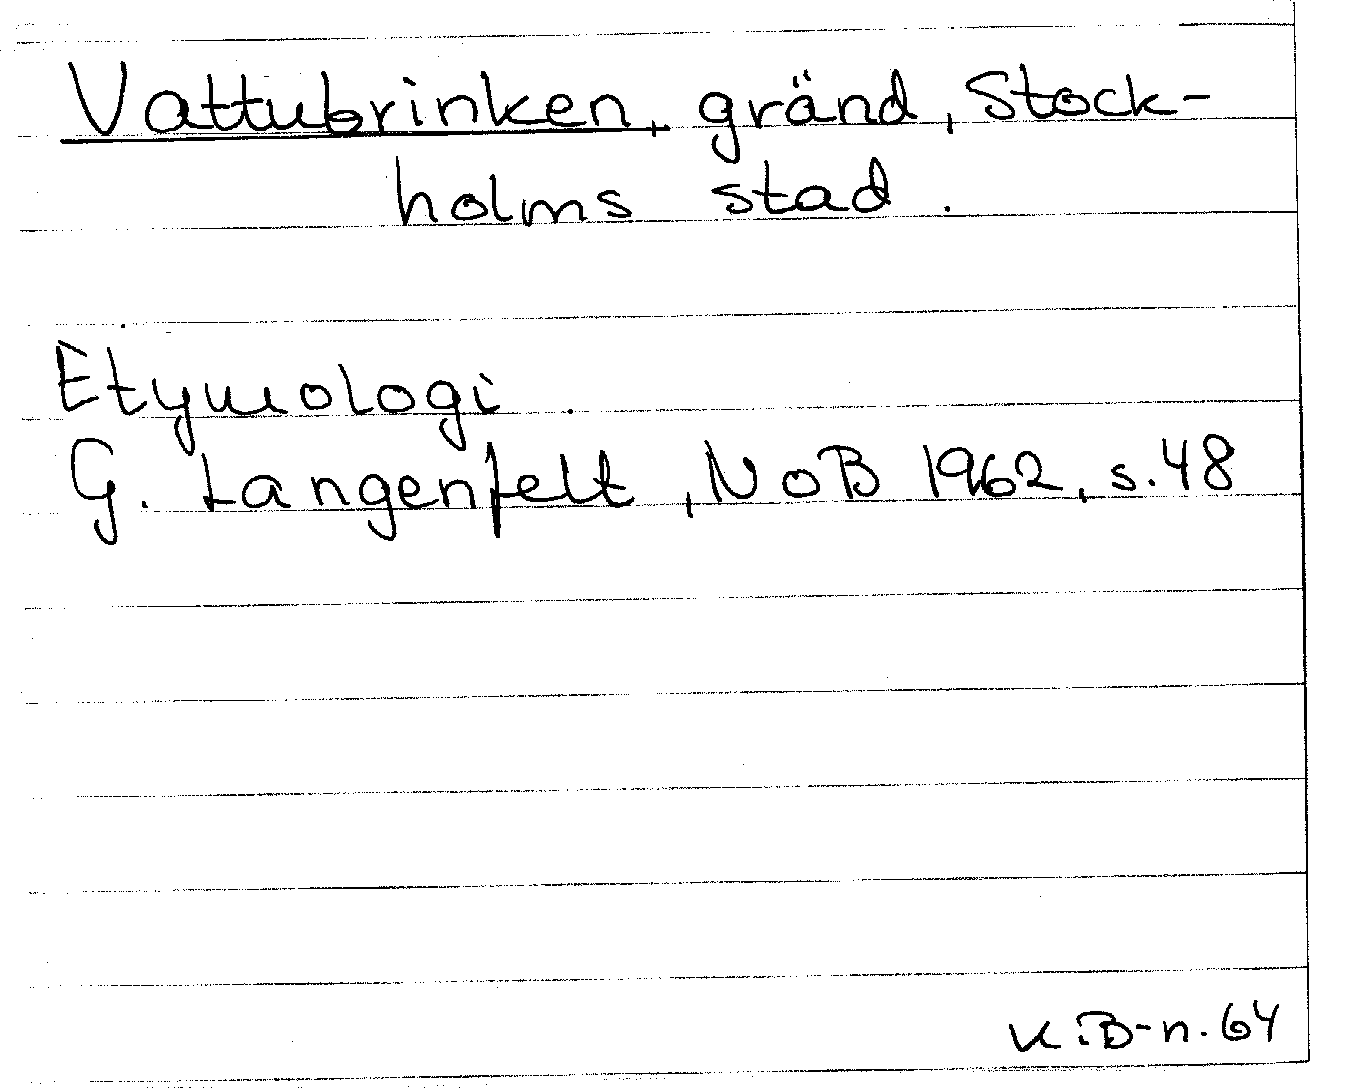 Vattubrinken, gränd, Stock-
holms stad.
Etymologi.
G. Langenfelt, NoB 1962, s. 48
K.B-n. 64